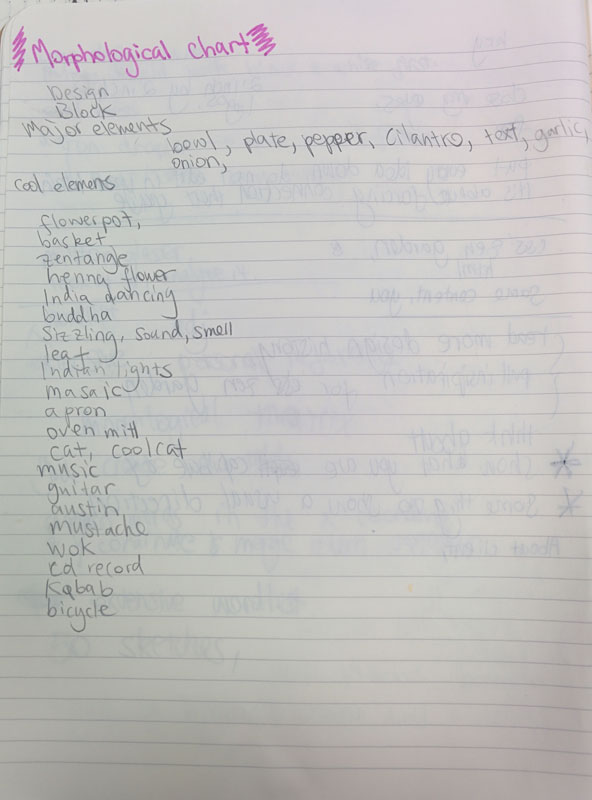 Morphological chart
Design
Block
Major elements
bowl, plate, pepper, Cilantro, text, garlic,
onion,
cool elemens
flowerpot,
basket
zentangle
henna flower
India dancing
buddha
Sizzling, sound, smell
leaf
Indian lights
masaic
apron
oven mitt
cat, coolcat
music
guitar
austin
mustache
wok
cd record
Kabab
bicycle